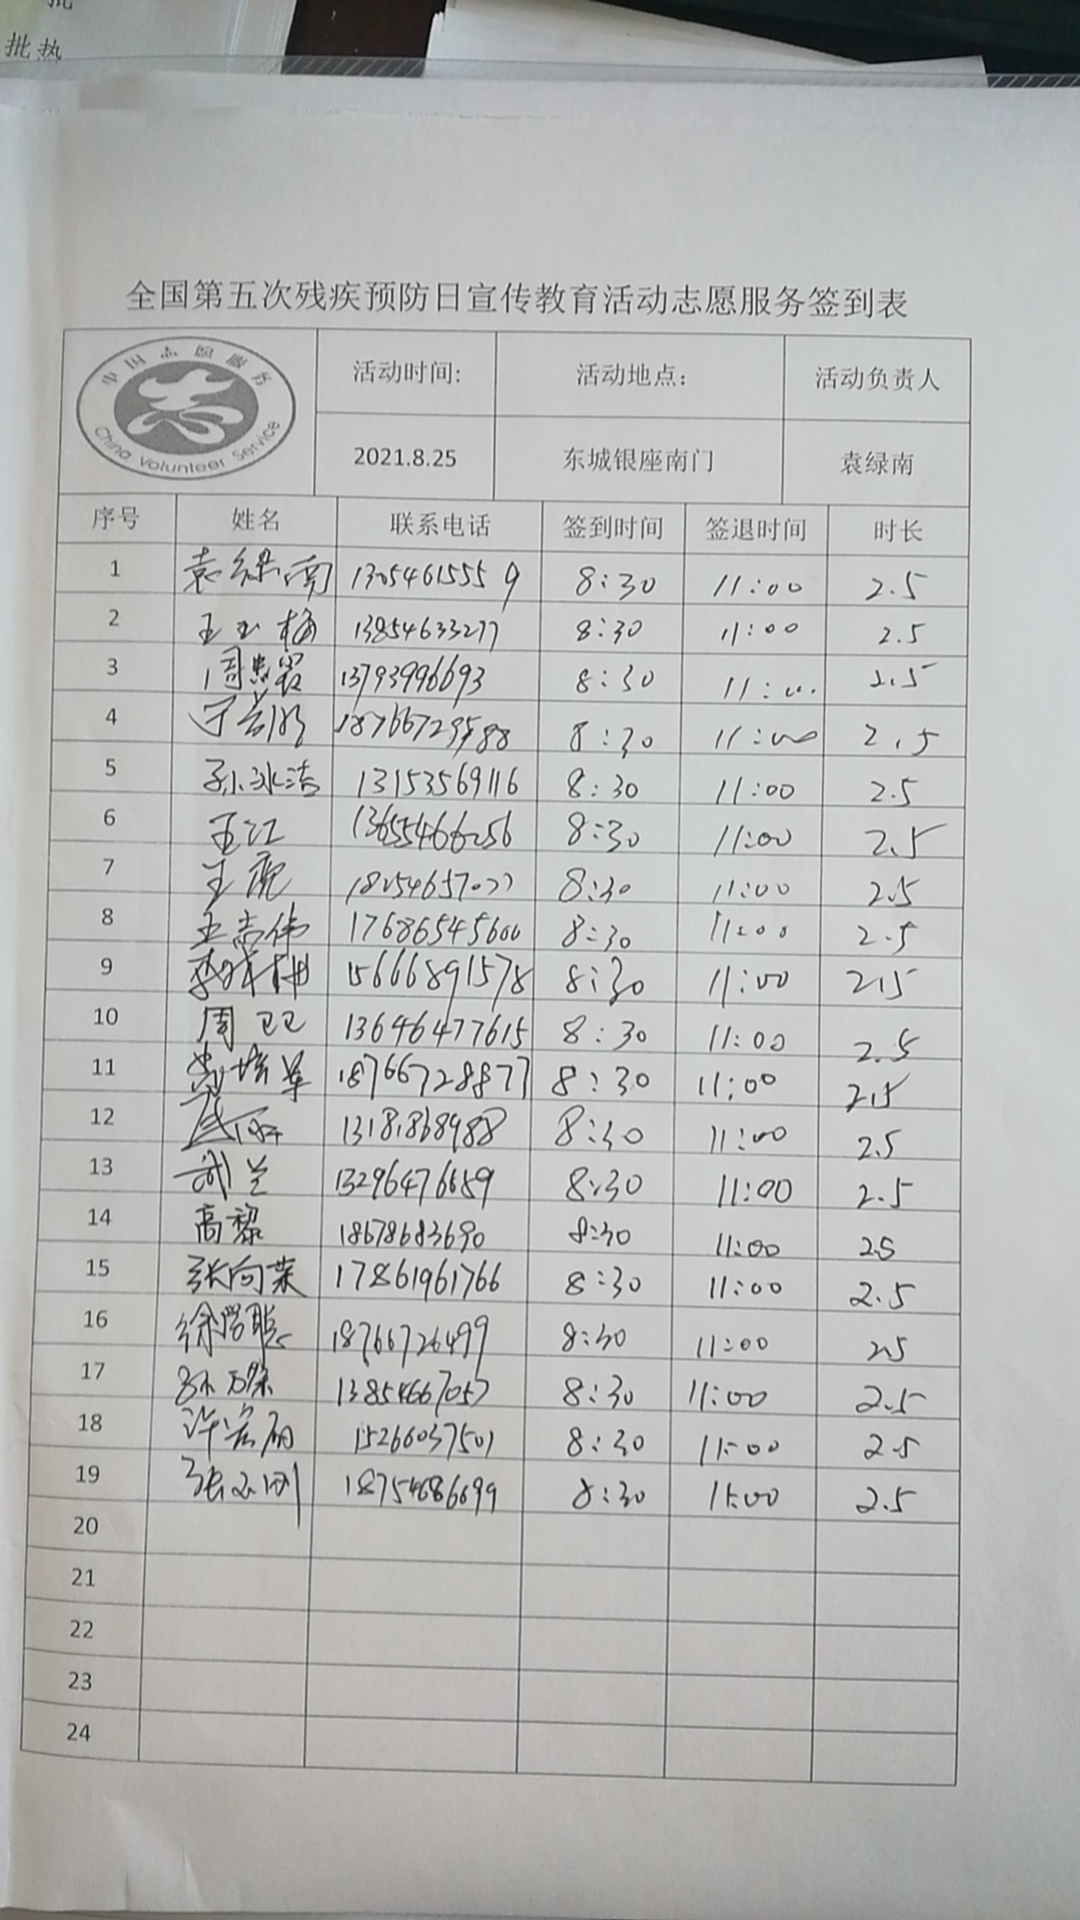 批
批热
全国第五次残疾预防日宣传教育活动志愿服务签到表
中国志愿服务
China Volunteer Service
活动时间: 活动地点: 活动负责人
2021.8.25 东城银座南门 袁绿南
序号 姓名 联系电话 签到时间 签退时间 时长
1 袁绿南 13054615559 8:30 11:00 2.5
2 王玉梅 13854633277 8:30 11:00 2.5
3 13793996693 8:30 11:00 2.5
4 8:30 11:00 2.5
5 孙冰洁 13153569116 8:30 11:00 2.5
6 王江 13655466256 8:30 11:00 2.5
7 王虎 8:30 11:00 2.5
8 王志伟 17686545600 8:30 11:00 2.5
9 15666891578 8:30 11:00 2.5
10 周卫卫 13646477615 8:30 11:00 2.5
11 18766728877 8:30 11:00 2.5
12 13181868988 8:30 11:00 2.5
13 武兰 13296476659 8:30 11:00 2.5
14 高黎 18678683690 8:30 11:00 2.5
15 张向荣 17861961766 8:30 11:00 2.5
16 徐学聪 18766726499 8:30 11:00 25
17 13854667057 8:30 11:00 2.5
18 许岩丽 15266037501 8:30 11:00 2.5
19 18754686699 8:30 11:00 2.5
20
21
22
23
24